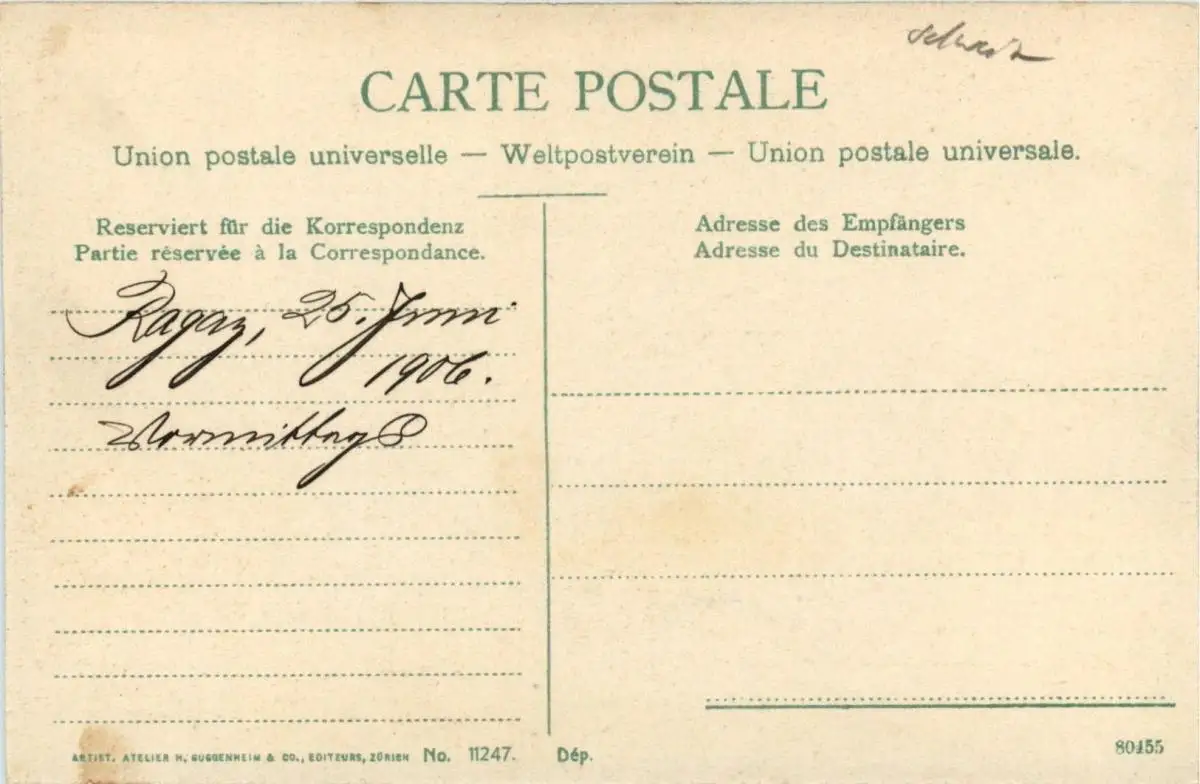 Schweiz
CARTE POSTALE
Union postale universelle — Weltpostverein — Union postale universale.
Reserviert für die Korrespondenz
Partie réservée à la Correspondance.
Adresse des Empfängers
Adresse du Destinataire.
Ragaz, 25. Juni
1906.
Vormittag
ARTIST. ATELIER H. GUGGENHEIM & CO., EDITEURS, ZÜRICH No. 11247. Dép.
80455